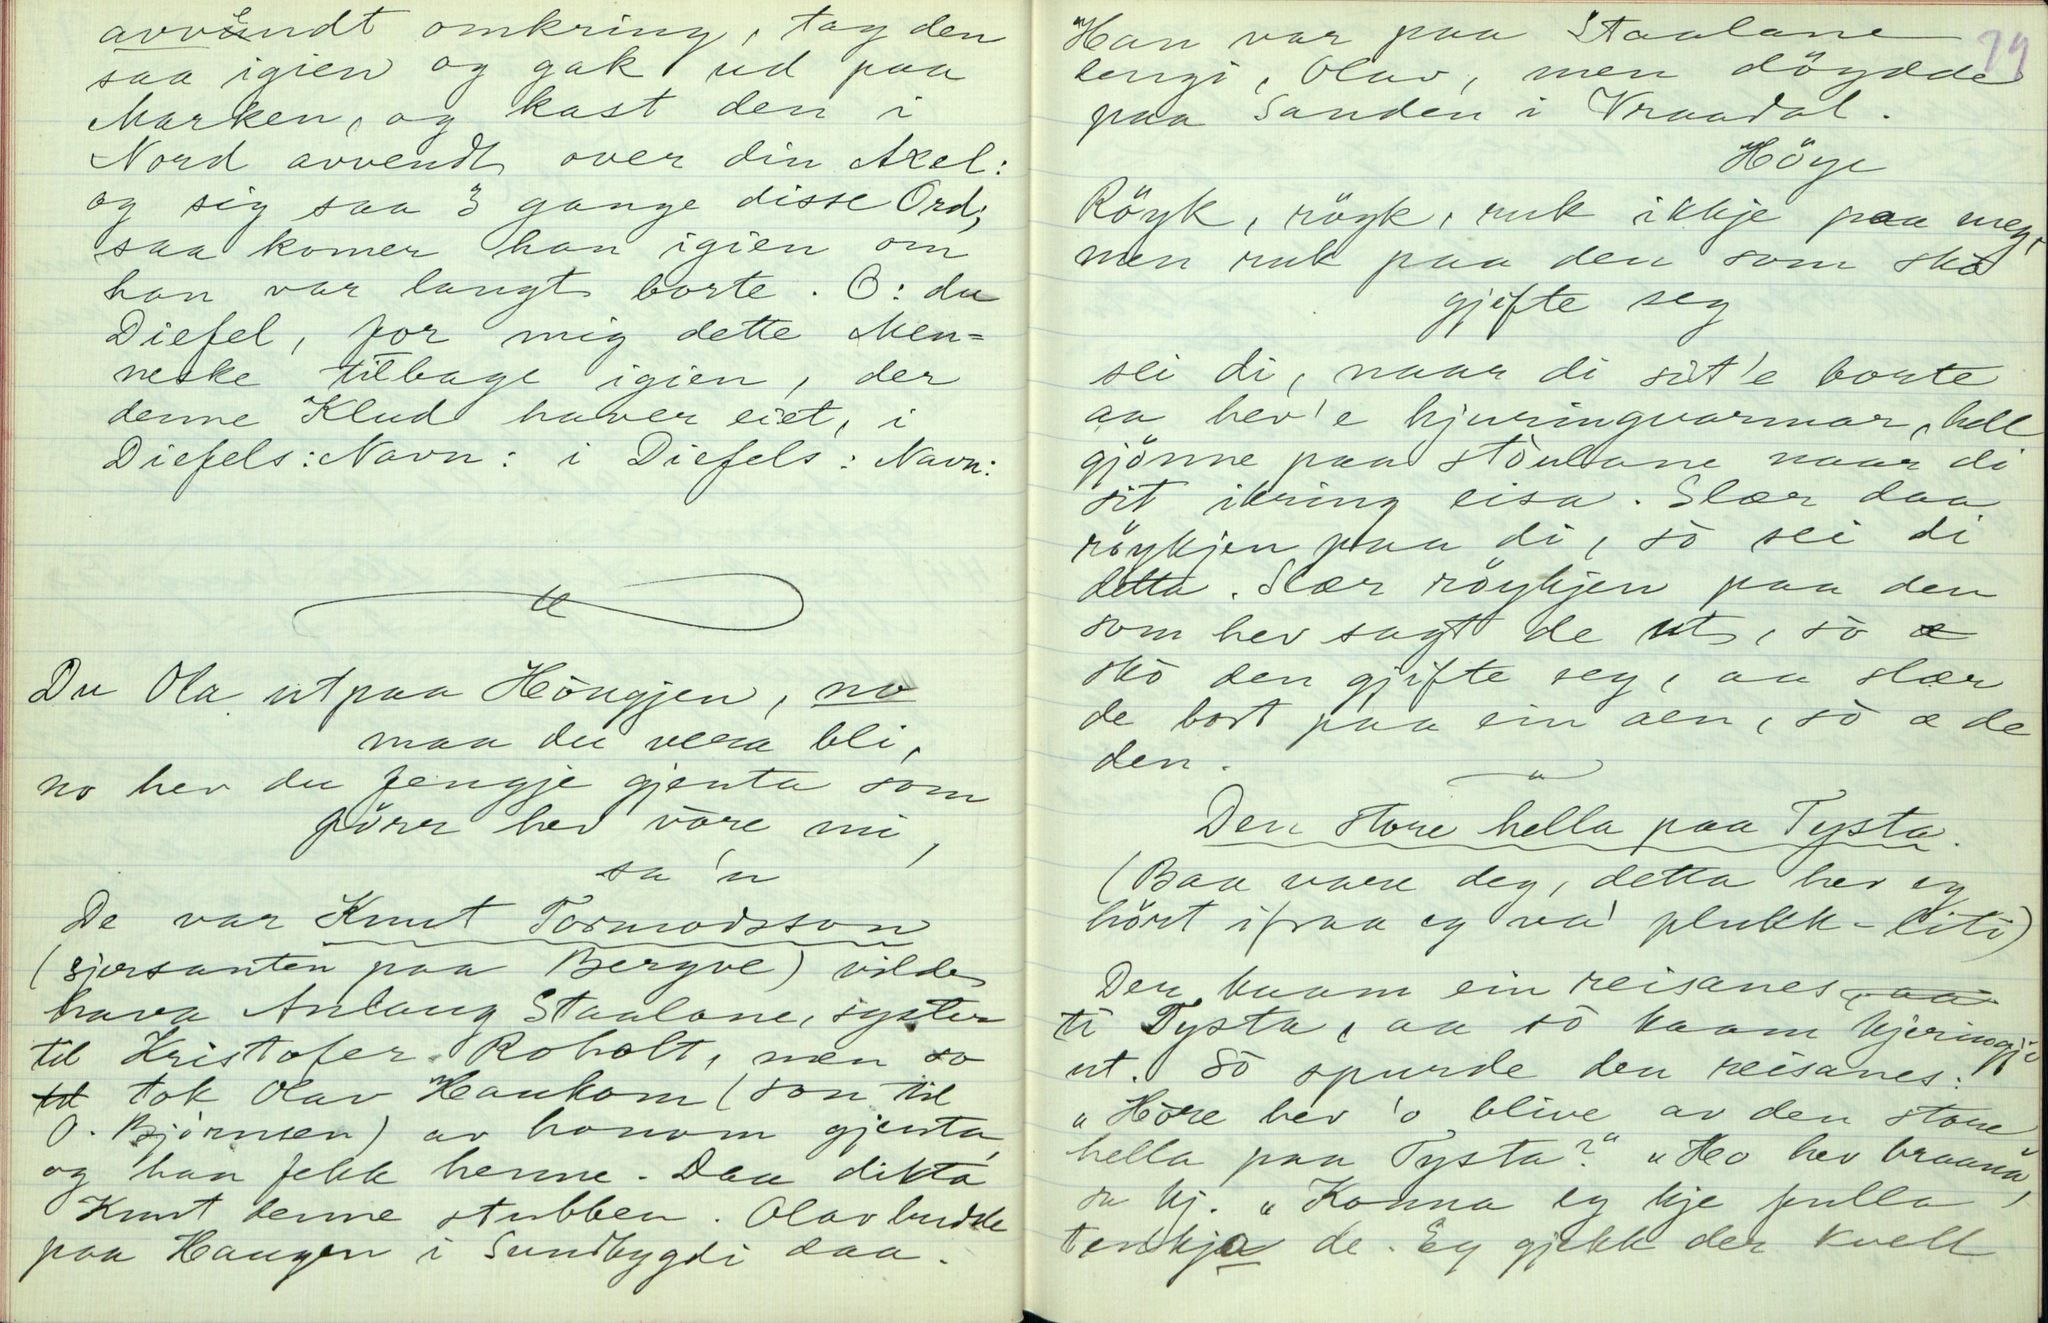 avvendt omkring, tag den
saa igien og gak ud paa
Marken, og kast den i
Nord avvendt over din Axel:
og sig saa 3 gange disse Ord;
saa komer han igien om
han var langt borte. O: du
Diefel, for mig dette Men=
neske tilbage igien, der
denne Klud haver eiet, i
Diefels: Navn: i Diefels: Navn:
Du Ola utpaa Höugjen, no
maa du vera bli,
no hev du fengje gjenta som
förr hev vore mi,
sa 'n
De var Knut Tormodsson
(sjersanten paa Bergve) vilde
hava Anlaug Staalane, syster
til Kristofer Roholt, men so
tok Olav Haukom (son til
O. Björnsen) av honom gjenta,
og han fekk henne. Daa dikta
Knut denne stubben. Olav budde
paa Haugen i Sundbygdi daa.
79
Han var paa Staalane
lengi, Olav, men döydde
paa Sanden i Vraadal.
Höye
Röyk, röyk, ruk ikkje paa meg,
men ruk paa den som sko
gjifte seg
sei di, naar di sit'e borte
aa hev'e hjuringvarmar, hell
gjönne paa stöulane naar di
sit ikring eisa. Slær daa
röykjen paa di, so sei di
detta. Slær röykjen paa den
som hev sagt de ut, so
sko den gjifte seg, aa slær
de bort paa ein aen, so æ de
den.
Den store hella paa Tysta.
(Baa vare deg, detta hev eg
hört ifraa eg va' plukk-liti)
Der kaam ein reisanes
ti Tysta, aa so kaam kjeringji
ut. So spurde den reisanes:
"Hore hev 'o blive av den store
hella paa Tysta?" "Ho hev braana,"
sa kj. "Konna eg kje fulla
tenkja de. Eg gjekk der kvell